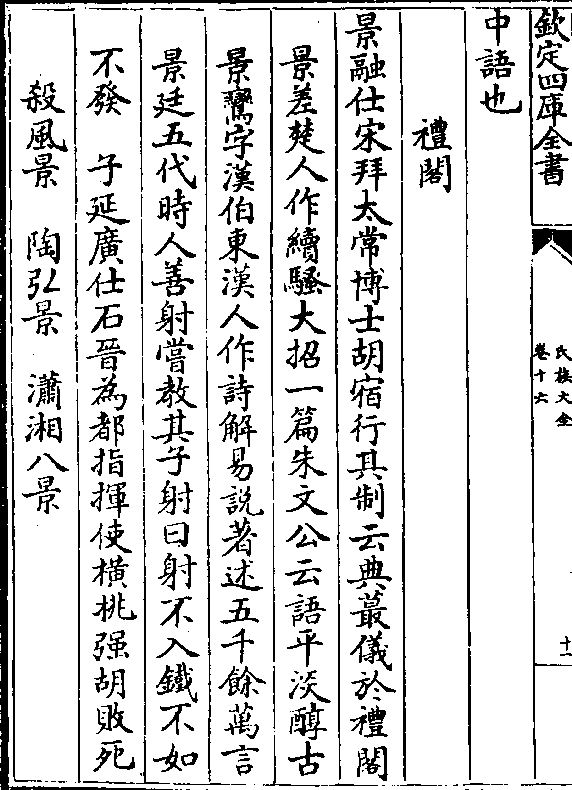 欽定四庫全書
氏族大全
卷十六
十一
中語也
禮閣
景融仕宋拜太常博士胡宿行其制云典蕞儀於禮閣
景差楚人作續騷大招一篇朱文公云語平淡醇古
景鸞字漢伯東漢人作詩解易說著述五千餘萬言
景廷五代時人善射嘗教其子射曰射不入鐵不如
不發　子延廣仕石晉為都指揮使橫桃强胡敗死
殺風景　陶弘景　瀟湘八景